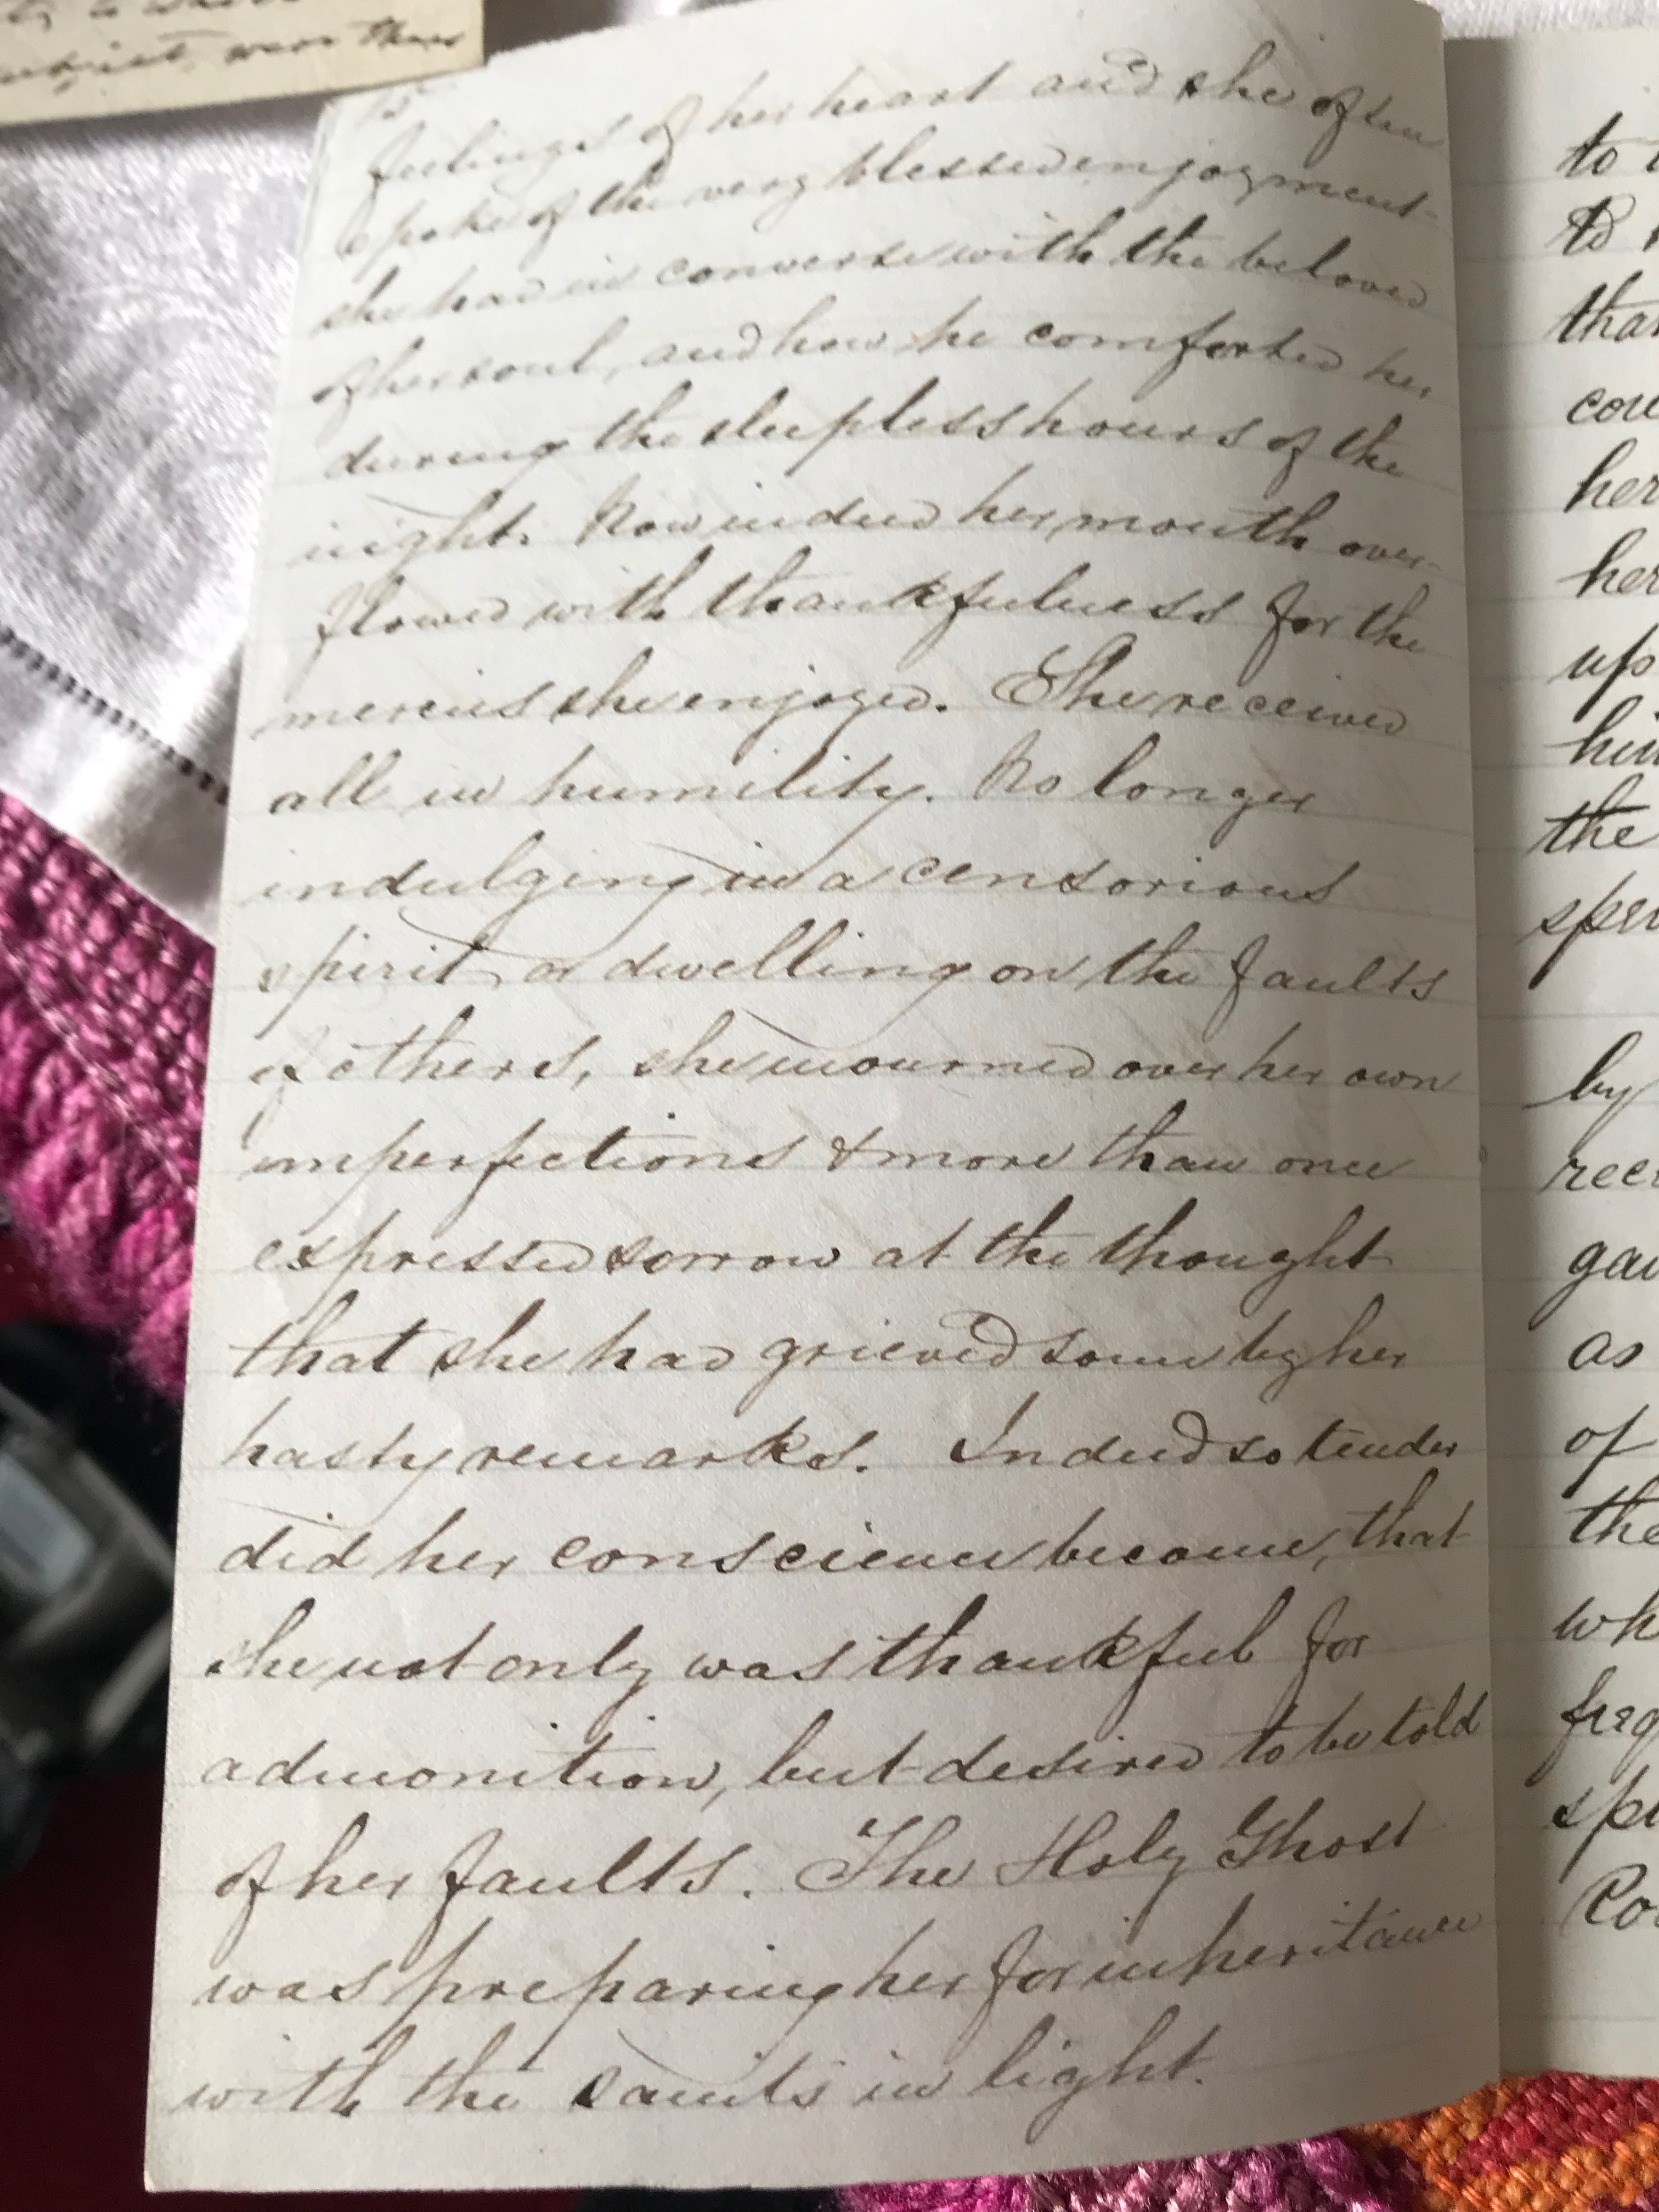 to where
subject were then
15
feelings of her heart and she often
spoke of the very blessed enjoyment
she had in converse with the beloved
of her soul, and how he comforted her
during the sleepless hours of the
night. Now indeed her mouth over-
flowed with thankfulness for the
mercies she enjoyed. She received
all in humility. No longer
indulging in a censorious
spirit or dwelling on the faults
of others, she mourned over her own
imperfections & more than once
expressed sorrow at the thought
that she had grieved some by her
hasty remarks. Indeed so tender
did her conscience become, that
she not only was thankful for
admonition, but desired to be told
of her faults. The Holy Ghost
was preparing her for inheritance
with the saints in light.
to
to
her
her
up
the
by
as
of